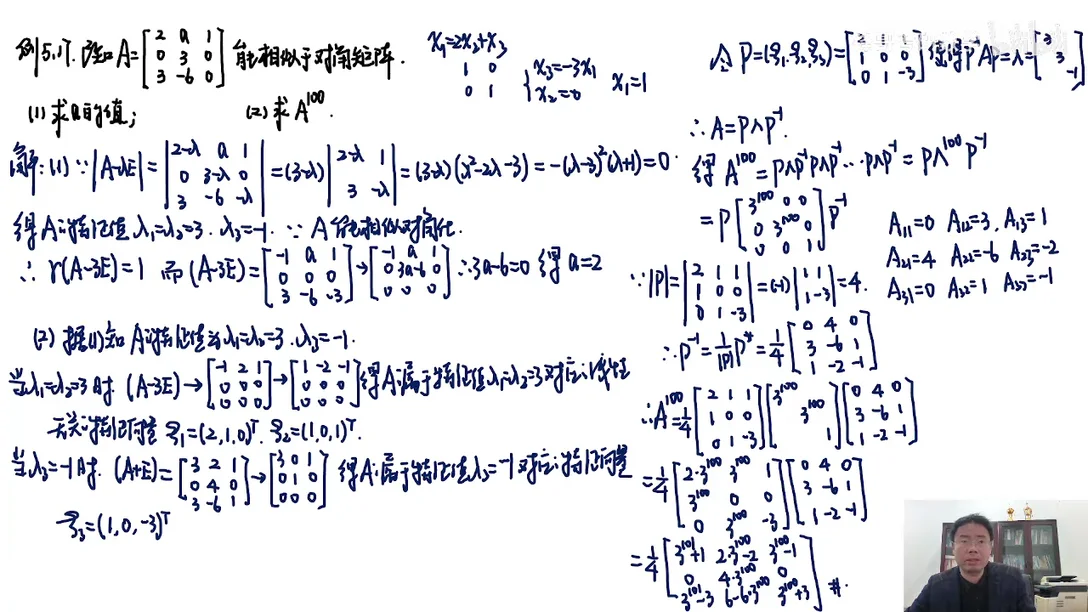 例5.17. 已知A=[2 a 1; 0 3 0; 3 -6 0] 能相似于对角矩阵.
(1) 求a的值; (2) 求A^100.
解:(1) ∵|A-λE|=|2-λ a 1; 0 3-λ 0; 3 -6 -λ|=(3-λ)|2-λ 1; 3 -λ|=(3-λ)(λ²-2λ-3)=-(λ-3)²(λ+1)=0.
得A的特征值λ₁=λ₂=3. λ₃=-1. ∵ A能相似对角化.
∴ r(A-3E)=1 而(A-3E)=[-1 a 1; 0 0 0; 3 -6 -3]→[-1 a 1; 0 3a-6 0; 0 0 0] ∴3a-6=0 得a=2
(2) 据(1)知 A的特征值为λ₁=λ₂=3. λ₃=-1.
当λ₁=λ₂=3时. (A-3E)→[-1 2 1; 0 0 0; 0 0 0]→[1 -2 -1; 0 0 0; 0 0 0] 得A的属于特征值λ₁=λ₂=3对应的线性
无关的特征向量 ξ₁=(2,1,0)ᵀ. ξ₂=(1,0,1)ᵀ.
当λ₃=-1时. (A+E)=[3 2 1; 0 4 0; 3 -6 1]→[3 0 1; 0 1 0; 0 0 0] 得A的属于特征值λ₃=-1对应的特征向量
ξ₃=(1,0,-3)ᵀ
x₁=2x₂+x₃
1 0
0 1
{x₃=-3x₁
x₂=0
x₁=1
令P=(ξ₁,ξ₂,ξ₃)=[2 1 1; 1 0 0; 0 1 -3] 使得P⁻¹AP=Λ=[3; 3; -1]
∴ A=PΛP⁻¹.
得A^100=PΛP⁻¹PΛP⁻¹⋯PΛP⁻¹=PΛ^100P⁻¹
=P[3^100 0 0; 0 3^100 0; 0 0 1]P⁻¹
∵|P|=|2 1 1; 1 0 0; 0 1 -3|=(-1)|1 1; 1 -3|=4.
A₁₁=0 A₁₂=3, A₁₃=1
A₂₁=4 A₂₂=-6 A₂₃=-2
A₃₁=0 A₃₂=1 A₃₃=-1
∴P⁻¹=1/|P| P*=1/4[0 4 0; 3 -6 1; 1 -2 -1]
∴A^100=1/4[2 1 1; 1 0 0; 0 1 -3][3^100; 3^100; 1][0 4 0; 3 -6 1; 1 -2 -1]
=1/4[2·3^100 3^100 1; 3^100 0 0; 0 3^100 -3][0 4 0; 3 -6 1; 1 -2 -1]
=1/4[3^101+1 2·3^100-2 3^100-1; 0 4·3^100 0; 3^101-3 6-6·3^100 3^100+3] #.